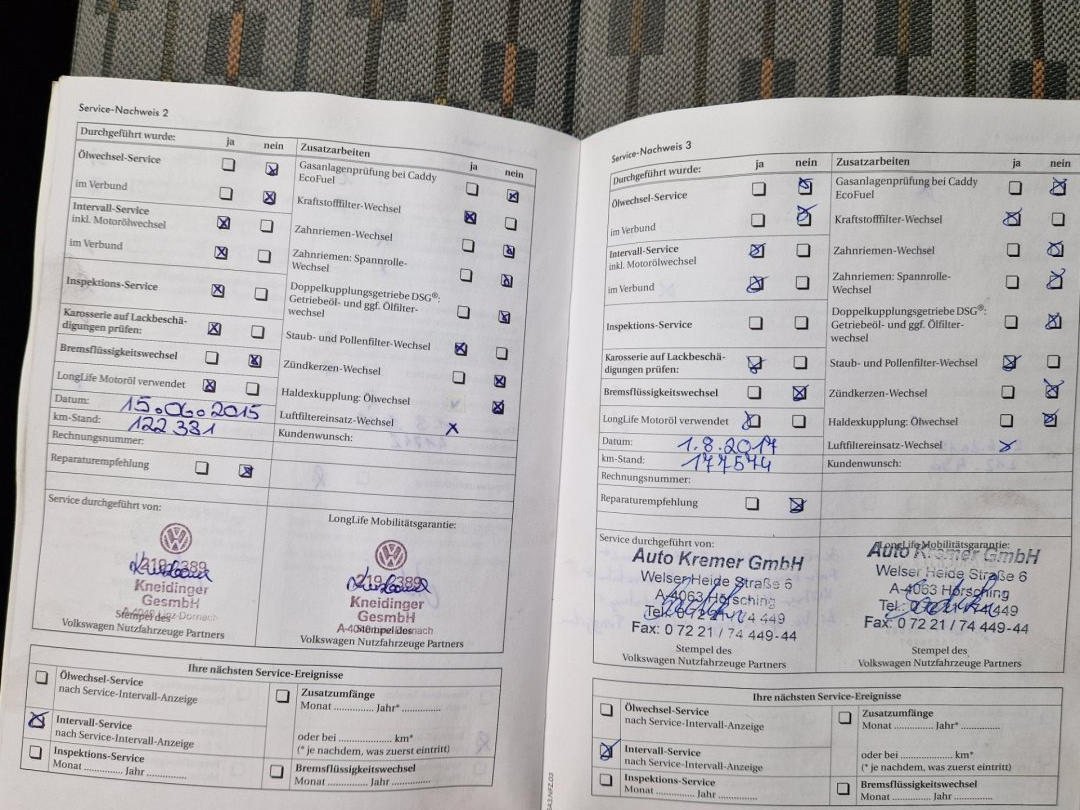 Service-Nachweis 2
Durchgeführt wurde: ja nein Zusatzarbeiten ja nein
Ölwechsel-Service
im Verbund
Intervall-Service
inkl. Motorölwechsel
im Verbund
Inspektions-Service
Karosserie auf Lackbeschä-
digungen prüfen:
Bremsflüssigkeitswechsel
LongLife Motoröl verwendet
Datum: 15.06.2015
km-Stand: 122 331
Rechnungsnummer:
Reparaturempfehlung
Gasanlagenprüfung bei Caddy
EcoFuel
Kraftstofffilter-Wechsel
Zahnriemen-Wechsel
Zahnriemen: Spannrolle-
Wechsel
Doppelkupplungsgetriebe DSG®:
Getriebeöl- und ggf. Ölfilter-
wechsel
Staub- und Pollenfilter-Wechsel
Zündkerzen-Wechsel
Haldexkupplung: Ölwechsel
Luftfiltereinsatz-Wechsel x
Kundenwunsch:
Service durchgeführt von:
219 389
Kneidinger
GesmbH
Stempel des
Volkswagen Nutzfahrzeuge Partners
LongLife Mobilitätsgarantie:
219 389
Kneidinger
GesmbH
Stempel des
Volkswagen Nutzfahrzeuge Partners
Ihre nächsten Service-Ereignisse
Ölwechsel-Service
nach Service-Intervall-Anzeige
Intervall-Service
nach Service-Intervall-Anzeige
Inspektions-Service
Monat ............. Jahr .............
Zusatzumfänge
Monat ............. Jahr* .............
oder bei ........................ km*
(* je nachdem, was zuerst eintritt)
Bremsflüssigkeitswechsel
Monat ............. Jahr .............
Service-Nachweis 3
Durchgeführt wurde: ja nein Zusatzarbeiten ja nein
Ölwechsel-Service
im Verbund
Intervall-Service
inkl. Motorölwechsel
im Verbund
Inspektions-Service
Karosserie auf Lackbeschä-
digungen prüfen:
Bremsflüssigkeitswechsel
LongLife Motoröl verwendet
Datum: 1.8.2017
km-Stand: 177574
Rechnungsnummer:
Reparaturempfehlung
Gasanlagenprüfung bei Caddy
EcoFuel
Kraftstofffilter-Wechsel
Zahnriemen-Wechsel
Zahnriemen: Spannrolle-
Wechsel
Doppelkupplungsgetriebe DSG®:
Getriebeöl- und ggf. Ölfilter-
wechsel
Staub- und Pollenfilter-Wechsel
Zündkerzen-Wechsel
Haldexkupplung: Ölwechsel
Luftfiltereinsatz-Wechsel x
Kundenwunsch:
Service durchgeführt von:
Auto Kremer GmbH
Welser Heide Straße 6
A-4063 Hörsching
Tel.: 0 72 21 / 74 449
Fax: 0 72 21 / 74 449-44
Stempel des
Volkswagen Nutzfahrzeuge Partners
LongLife Mobilitätsgarantie:
Auto Kremer GmbH
Welser Heide Straße 6
A-4063 Hörsching
Tel.: 0 72 21 / 74 449
Fax: 0 72 21 / 74 449-44
Stempel des
Volkswagen Nutzfahrzeuge Partners
Ihre nächsten Service-Ereignisse
Ölwechsel-Service
nach Service-Intervall-Anzeige
Intervall-Service
nach Service-Intervall-Anzeige
Inspektions-Service
Monat ............. Jahr .............
Zusatzumfänge
Monat ............. Jahr* .............
oder bei ........................ km*
(* je nachdem, was zuerst eintritt)
Bremsflüssigkeitswechsel
Monat ............. Jahr .............